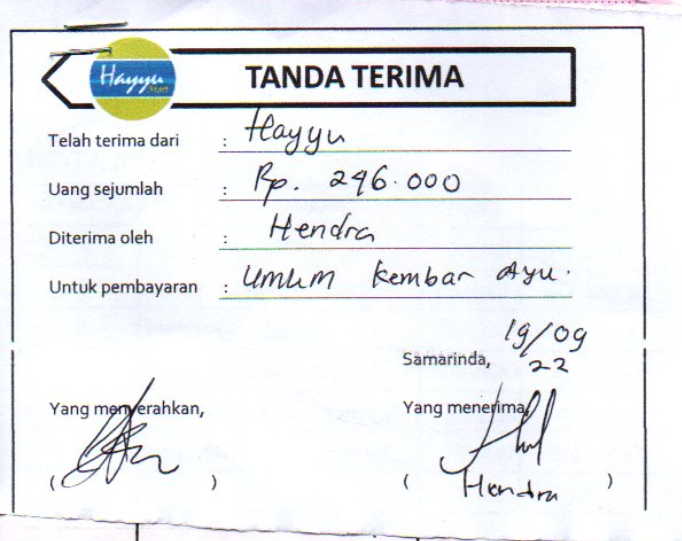 Hayyu
Mart
TANDA TERIMA
Telah terima dari : Hayyu
Uang sejumlah : Rp. 296.000
Diterima oleh : Hendra
Untuk pembayaran : Umum Kembar Ayu.
Samarinda, 19/09
22
Yang menyerahkan, Yang menerima,
( ) ( Hendra )